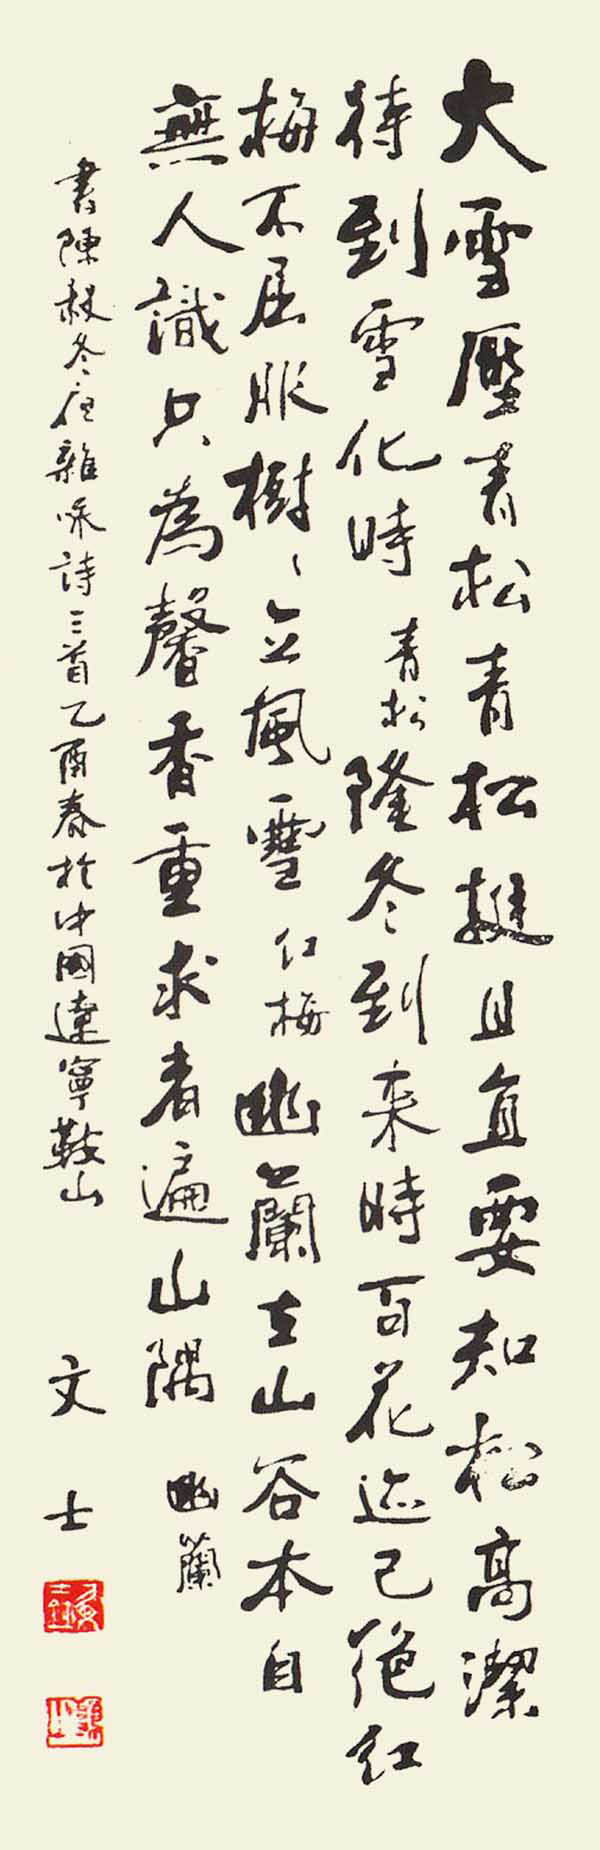 大雪壓青松青松挺且直要知松高潔
待到雪化時 青松 隆冬到來時百花迹已絕紅
梅不屈服樹々立風雪 紅梅 幽蘭在山谷本自
無人識只為馨香重求者遍山隅 幽蘭
書陳毅冬夜雜咏詩三首乙酉春於中國遼寧鞍山
文士